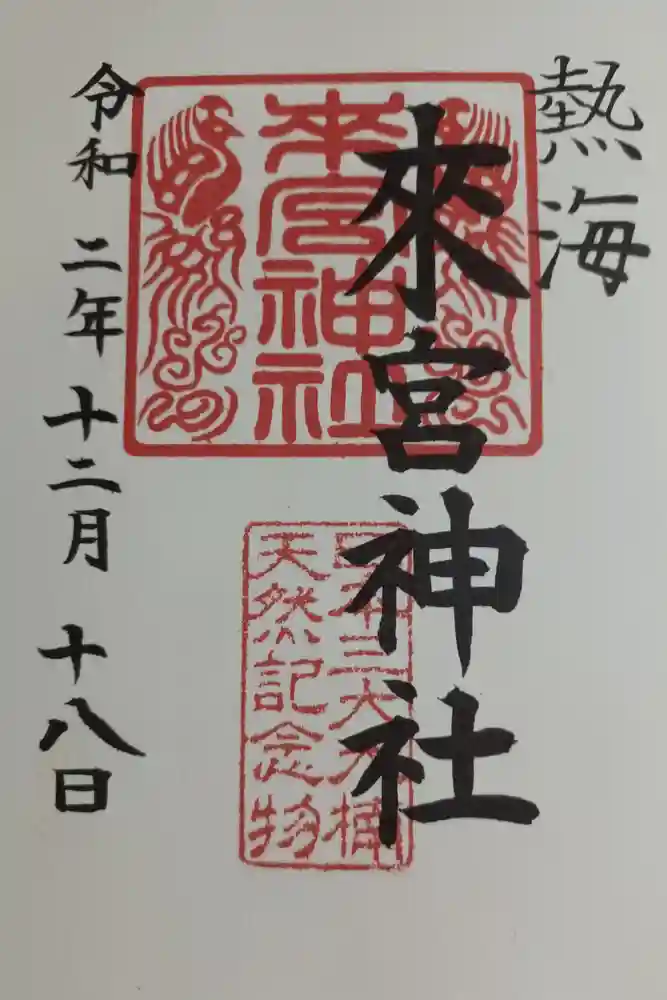 熱海
來宮神社
來宮神社
日本三大大楠
天然記念物
令和 二年 十二月 十八日